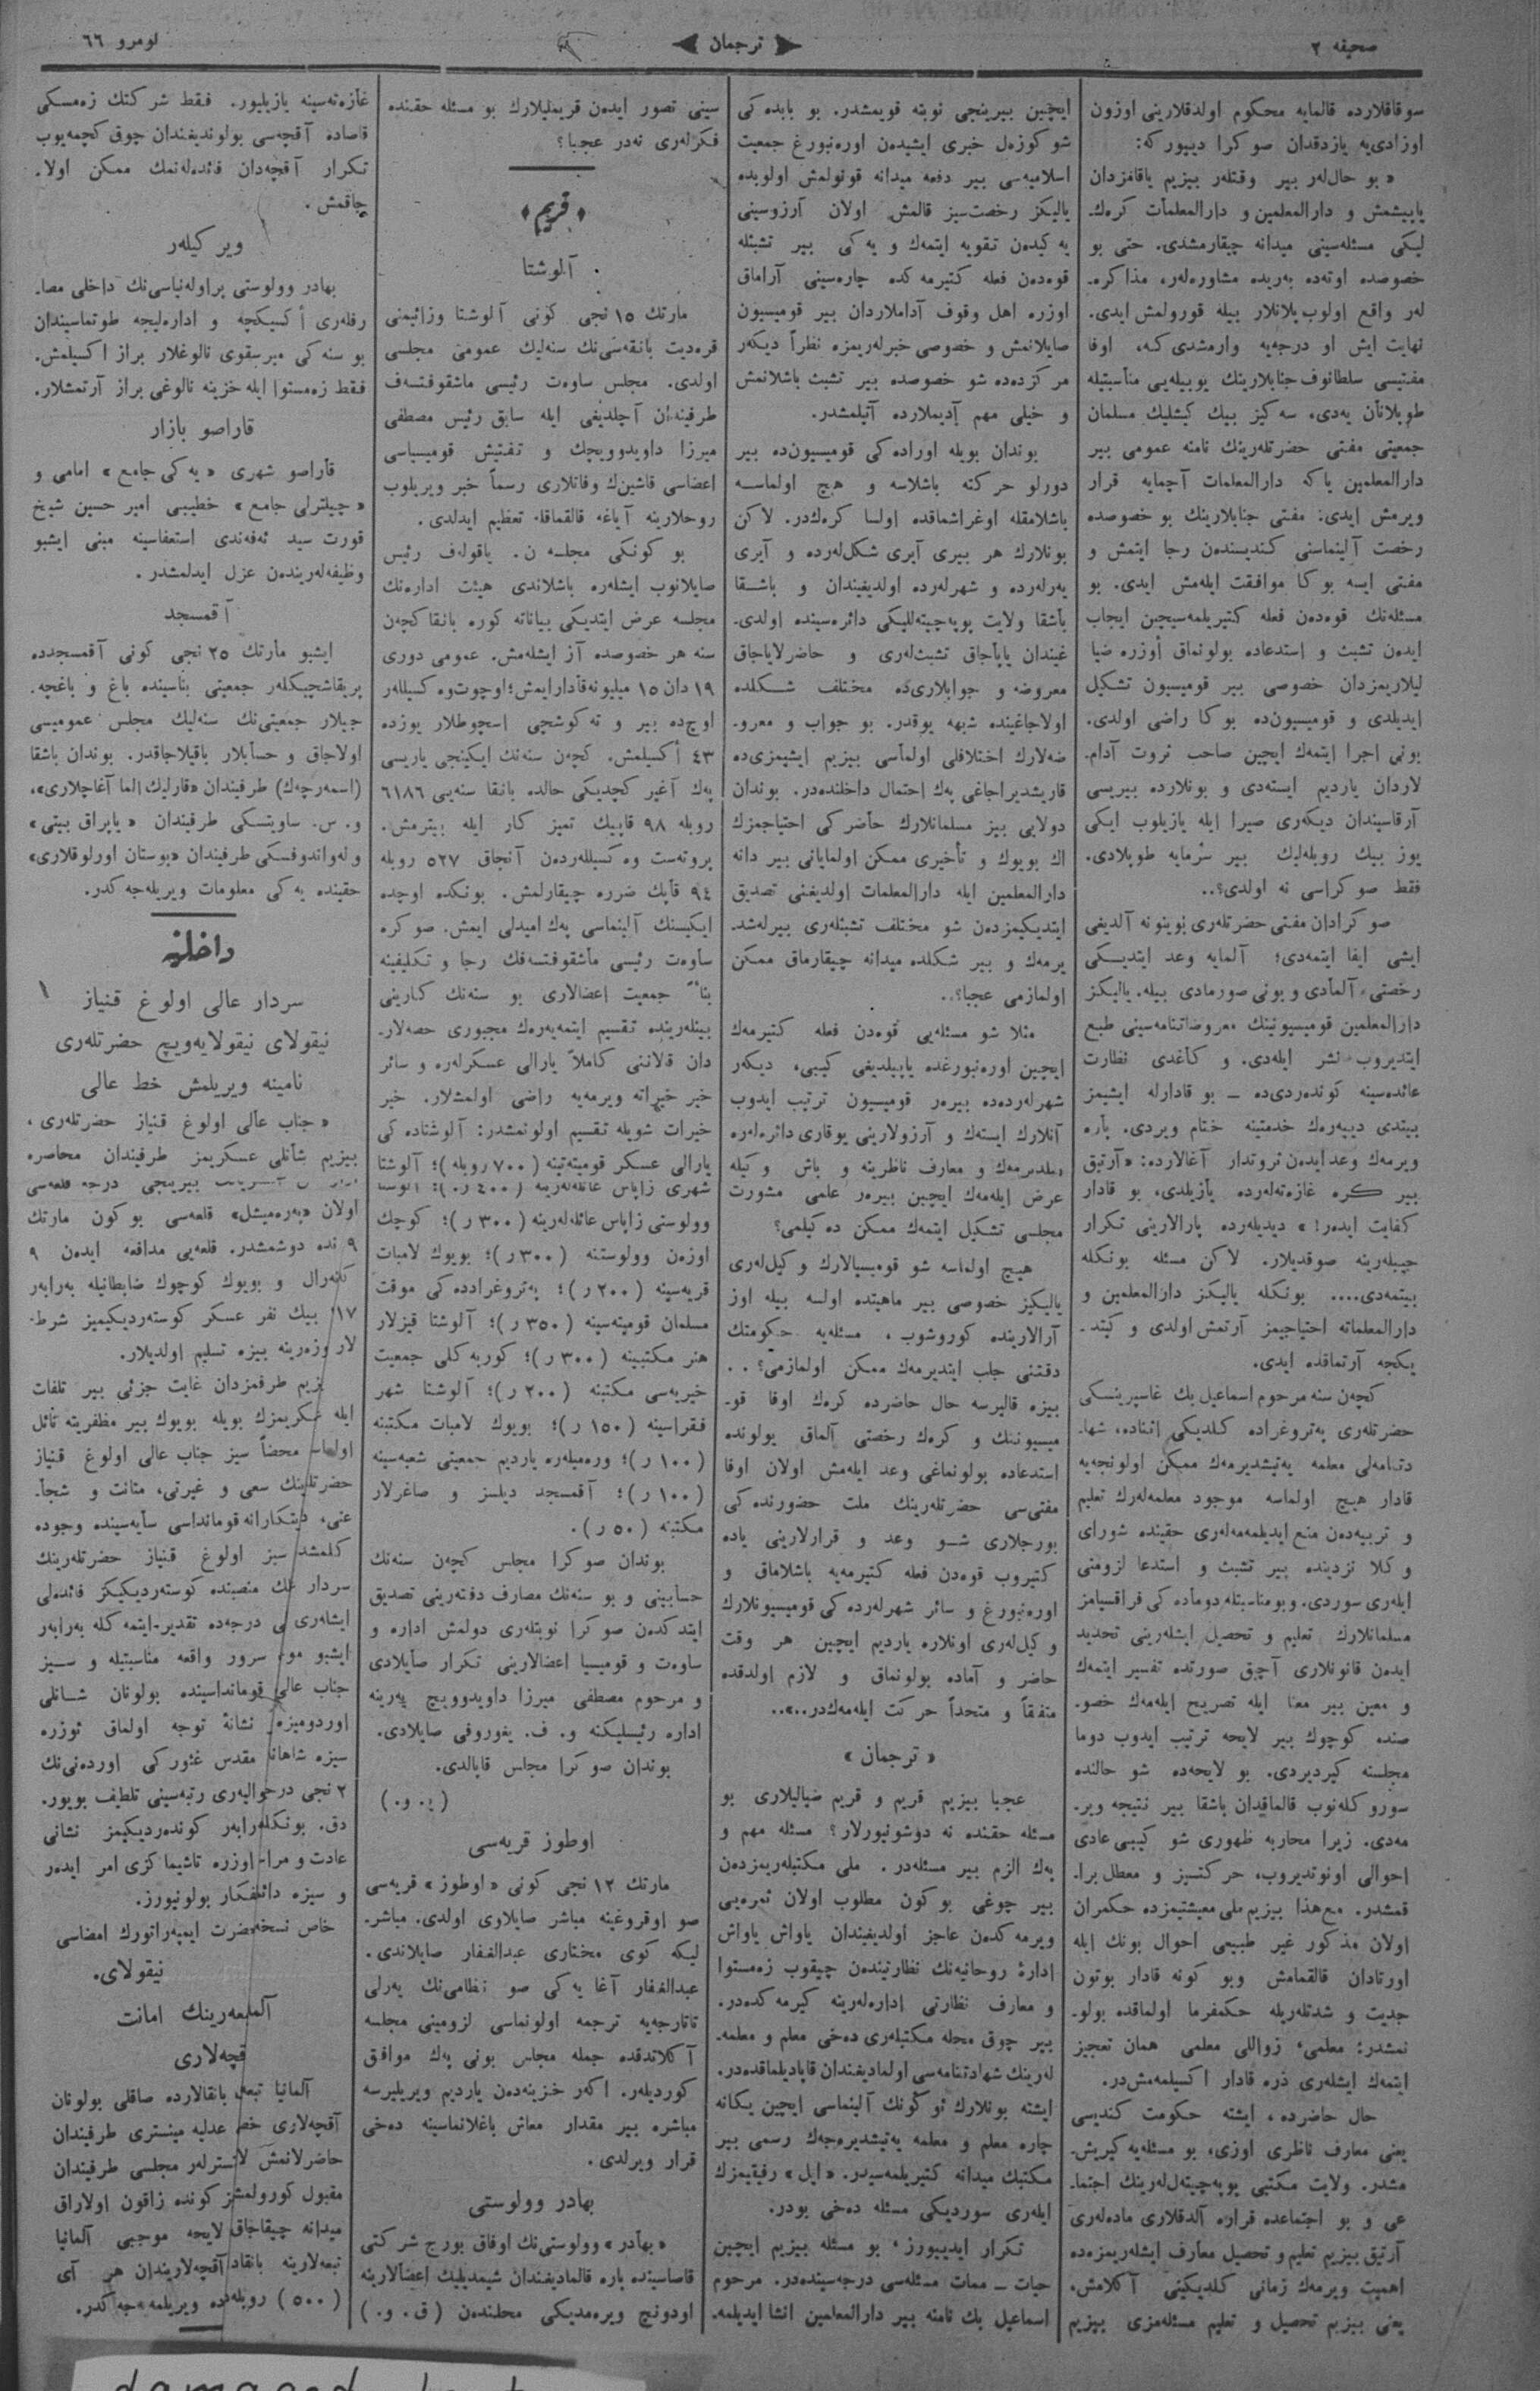 صحیفه ٢
ترجمان
لومرو ٦٦
سوقاقلارده قالمایه محکوم اولدقلارینی اوزون
اوزادی‌یه یازدقدان صوکرا دییور که:
« بو حال‌لەر بیر وقتلەر بیزیم یاقامزدان
یاپیشمش و دارالمعلمین و دارالمعلمات کرەك‌ـ
لیکی مسئله‌سینی میدانه چیقارمشدی. حتی بو
خصوصده اوته‌ده بەریده مشاوره‌لەر، مذاکره‌ـ
لەر واقع اولوب پلانلار بیله قورولمش ایدی.
نهایت ایش او درجه‌یه وارمشدی که، اوفا
مفتیسی سلطانوف جنابلارینك یوبیله‌یی مناسبتیله
طوپلانان یەدی، سەکیز بیك کیشلیك مسلمان
جمعیتی مفتی حضرتلەرینك نامنه عمومی بیر
دارالمعلمین یاکه دارالمعلمات آچمایه قرار
ویرمش ایدی: مفتی جنابلارینك بو خصوصده
رخصت آلینماسنی کندیسندەن رجا ایتمش و
مفتی ایسه بوکا موافقت ایله‌مش ایدی. بو
مسئله‌نك قوه‌دەن فعله کتیریلمه‌سیچین ایجاب
ایدەن تشبث و استدعاده بولونماق اوزره ضیا
لیلاریمزدان خصوصی بیر قومیسیون تشکیل
ایدیلدی و قومیسیون‌ده بوکا راضی اولدی.
بونی اجرا ایتمەك ایچین صاحب ثروت آدام‌ـ
لاردان یاردیم ایسته‌دی و بونلارده بیریسی
آرقاسیندان دیکەری صیرا ایله یازیلوب ایکی
یوز بیك روبله‌لیك بیر سرمایه طوپلادی.
فقط صوکراسی نه اولدی؟..
صوکرادان مفتی حضرتلەری بوینونه آلدیغی
ایشی ایفا ایتمه‌دی؛ آلمایه وعد ایتدیـکی
رخصتی، آلمادی و بونی صورمادی بیله. یالیکز
دارالمعلمین قومیسیونینك معروضاتنامه‌سینی طبع
ایتدیروب نشر ایله‌دی. و کاغدی نظارت
عائده‌سینه کونده‌ردی‌ده ــ بو قادارله ایشیمز
بیتدی دییه‌رەك خدمتینه ختام ویردی. پاره
ویرمەك وعد ایدەن ثروتدار آغالارده: «آرتیق
بیر کره غازەته‌لەرده یازیلدی، بو قادار
کفایت ایدەر! » دیدیلەرده پارالارینی تکرار
جیبلەرینه صوقدیلار. لاکن مسئله بونکله
بیتمه‌دی.... بونکله یالیکز دارالمعلمین و
دارالمعلماته احتیاجیمز آرتمش اولدی و کیتد‌ـ
یکجه آرتماقده ایدی.
کچەن سنه مرحوم اسماعیل بك غاسپرینسکی
حضرتلەری پەتروغراده کلدیکی اثناده، شهاـ
دتنامه‌لی معلمه یەتیشدیرمەك ممکن اولونجه‌یه
قادار هیچ اولماسه موجود معلمه‌لەرك تعلیم
و تربیه‌دەن منع ایدیلمه‌مه‌لەری حقینده شورای
وکلا نزدینده بیر تشبث و استدعا لزومنی
ایله‌ری سوردی. و بو مناسبتله دوماده کی فراقسیامز
مسلمانلارك تعلیم و تحصیل ایشلەرینی تحدید
ایدەن قانونلاری آچیق صورتده تفسیر ایتمەك
و معین بیر معنا ایله تصریح ایله‌مەك خصوـ
صنده کوچوك بیر لایحه ترتیب ایدوب دوما
مجلسنه کیردیردی. بو لایحه‌ده شو حالنده
سوروکله‌نوب قالماقدان باشقا بیر نتیجه ویرـ
مه‌دی. زیرا محاربه ظهوری شو کیبی عادی
احوالی اونوتدیروب، حرکتسیز و معطل براـ
قمشدر. مع‌هذا بیزیم ملی معیشتیمزده حکمران
اولان مذکور غیر طبیعی احوال بونك ایله
اورتادان قالقمامش وبو کونه قادار بوتون
جدیت و شدتلەریله حکمفرما اولماقده بولوـ
نمشدر: معلمی، زواللی معلمی همان تعجیز
ایتمەك ایشلەری ذره قادار اکسیلمه‌مش‌در.
حال حاضرده، ایشته حکومت کندیسی
یعنی معارف ناظری اوزی، بو مسئله‌یه کیریش‌ـ
مشدر. ولایت مکتبی پوپەچیتەل‌لەرینك اجتماـ
عی و بو اجتماعده قراره آلدقلاری ماده‌لەری
آرتیق بیزیم تعلیم و تحصیل معارف ایشلەریمزه‌ده
اهمیت ویرمەك زمانی کلدیکینی آکلامش،
یعنی بیزیم تحصیل و تعلیم مسئله‌مزی بیزیم
ایچین بیرینجی نوبته قویمشدر. بو بابده کی
شو کوزەل خبری ایشیدەن اورەنبورغ جمعیت
اسلامیه‌سی بیر دفعه میدانه قونولمش اولوبده
یالیکز رخصت‌سیز قالمش اولان آرزوسینی
یەکیدەن تقویه ایتمەك و یەکی بیر تشبثله
قوه‌دەن فعله کتیرمه‌کده چاره‌سینی آراماق
اوزره اهل وقوف آداملاردان بیر قومیسیون
صایلانمش و خصوصی خبرلەریمزه نظراً دیکەر
مرکزده‌ده شو خصوصده بیر تشبث باشلانمش
و خیلی مهم آدیملارده آتیلمشدر.
بوندان بویله اوراده کی قومیسیون‌ده بیر
دورلو حرکته باشلاسه و هیچ اولماسـه
باشلامقله اوغراشماقده اولسا کرەك‌در. لاکن
بونلارك هر بیری آیری شکل‌لەرده و آیری
یەرلەرده و شهرلەرده اولدیغیندان و باشـقا
باشقا ولایت پوپەچیتەللیکی دائره‌سینده اولدی‌ـ
غیندان یاپاجاق تشبث‌لەری و حاضرلایاجاق
معروضه و جوابلاری‌ده مختلف شـکلده
اولاجاغینده شبهه یوقدر. بو جواب و معروـ
ضه‌لارك اختلافلی اولماسی بیزیم ایشیمزی‌ده
قاریشدیراجاغی پەك احتمال داخلنده‌در. بوندان
دولایی بیز مسلمانلارك حاضرکی احتیاجمزك
اك بویوك و تأخیری ممکن اولمایانی بیر دانه
دارالمعلمین ایله دارالمعلمات اولدیغنی تصدیق
ایتدیکیمزدەن شو مختلف تشبثلەری بیرله‌شدـ
یرمەك و بیر شکلده میدانه چیقارماق ممکن
اولمازمی عجبا؟..
مثلا شو مسئله‌یی قوه‌دن فعله کتیرمەك
ایچین اورەنبورغده یاپیلدیغی کیبی، دیکەر
شهرلەرده‌ده بیرەر قومیسیون ترتیب ایدوب
آنلارك ایستەك و آرزولارینی یوقاری دائره‌لەره
بیلدیرمەك و معارف ناظرینه و باش وکیله
عرض ایله‌مەك ایچین بیرەر علمی مشورت
مجلسی تشکیل ایتمەك ممکن ده‌کیلمی؟
هیچ اولماسه شو قومیسیالارك وکیل‌لەری
یالیکز خصوصی بیر ماهیتده اولسه بیله اوز
آرالارینده کوروشوب، مسئله‌یه حکومتك
دقتنی جلب ایتدیرمەك ممکن اولمازمی؟..
بیزه قالیرسه حال حاضرده کرەك اوفا قوـ
میسیوننك و کرەك رخصتی آلماق یولونده
استدعاده بولونماغی وعد ایله‌مش اولان اوفا
مفتی‌سی حضرتلەرینك ملت حضورنده کی
بورجلاری شـو وعد و قرارلارینی یاده
کتیروب قوه‌دن فعله کتیرمه‌یه باشلاماق و
اورەنبورغ و سائر شهرلەرده کی قومیسیونلارك
وکیل‌لەری اونلاره یاردیم ایچین هر وقت
حاضر و آماده بولونماق و لازم اولدقده
متفقاً و متحداً حرکت ایله‌مەك‌در..»..
« ترجمان »
عجبا بیزیم قریم و قریم ضیالیلاری بو
مسئله حقنده نه دوشونیورلار؟ مسئله مهم و
پەك الزم بیر مسئله‌در. ملی مکتبلەریمزدەن
بیر چوغی بوکون مطلوب اولان ثمره‌یی
ویرمه‌کدەن عاجز اولدیغیندان یاواش یاواش
ادارۀ روحانیه‌نك نظارتیندەن چیقوب زەمستوا
و معارف نظارتی اداره‌لەرینه کیرمه‌کده‌در.
بیر چوق محله مکتبلەری ده‌خی معلم و معلمه‌ـ
لەرینك شهادتنامه‌سی اولمادیغندان قاپادیلماقده‌در.
ایشته بونلارك ئوکونك آلینماسی ایچین یکانه
چاره معلم و معلمه یەتیشدیره‌جەك رسمی بیر
مکتبك میدانه کتیریلمه‌سیدر. «ایل» رفیقیمزك
ایله‌ری سوردیکی مسئله ده‌خی بودر.
تکرار ایدییورز، بو مسئله بیزیم ایچین
حیات ــ ممات مسئله‌سی درجه‌سینده‌در. مرحوم
اسماعیل بك نامنه بیر دارالمعلمین انشا ایدیلمه‌ـ
سینی تصور ایدەن قریملیلارك بو مسئله حقنده
فکرلەری نەدر عجبا؟
﴿ قریم ﴾
آلوشتا
مارتك ١٥ نجی کونی آلوشتا وزائیمنی
قرەدیت بانقه‌سی‌نك سنه‌لیك عمومی مجلسی
اولدی. مجلس ساوەت رئیسی ماشقوفتسەف
طرفیندەن آچلدیغی ایله سابق رئیس مصطفی
میرزا داویدوویچك و تفتیش قومیسیاسی
اعضاسی قاشین‌ك وفاتلاری رسماً خبر ویریلوب
روحلارینه آیاغه قالقماقلا تعظیم ایدلدی.
بو کونکی مجلسه ن. یاقولەف رئیس
صایلانوب ایشلەره باشلاندی هیئت اداره‌نك
مجلسه عرض ایتدیکی بیاناته کوره بانقا کچەن
سنه هر خصوصده آز ایشله‌مش. عمومی دوری
١٩ دان ١٥ میلیونه قادار ایمش؛ اوچوت وەکسیللەر
اوچ‌ده بیر و تەکوشچی اسچوطلار یوزده
٤٣ اکسیلمش. کچەن سنه‌نك ایکینجی یاریسی
پەك آغیر کچدیکی حالده بانقا سنه‌یی ٦١٨٦
روبله ٩٨ قاپیك تمیز کار ایله بیترمش.
پروتەست وەکسیللەردەن آنجاق ٥٢٧ روبله
٩٤ قاپك ضرره چیقارلمش. بونکده اوچده
ایکیسنك آلینماسی پەك امیدلی ایمش. صوکره
ساوەت رئیسی ماشقوفتسەفك رجا و تکلیفینه
بناً جمعیت اعضالاری بو سنه‌نك کارینی
بینلەرینده تقسیم ایتمه‌یەرەك مجبوری حصه‌لارـ
دان قالاننی کاملاً یارالی عسکرلەره و سائر
خیر خیراته ویرمه‌یه راضی اولمشلار. خیر
خیرات شویله تقسیم اولونمشدر: آلوشتاده کی
یارالی عسکر قومیتەتینه (٧٠٠ روبله)؛ آلوشتا
شهری زاپاس عائله‌لەرینه (٤٠٠ ر.)؛ آلوشتا
وولوستی زاپاس عائله‌لەرینه (٣٠٠ ر)؛ کوچك
اوزەن وولوستنه (٣٠٠ ر)؛ بویوك لامبات
قریه‌سینه (٢٠٠ ر)؛ پەتروغرادده کی موقت
مسلمان قومیته‌سینه (٣٥٠ ر)؛ آلوشتا قیزلار
هنر مکتبینه (٣٠٠ ر)؛ کوربه‌کلی جمعیت
خیریه‌سی مکتبنه (٢٠٠ ر)؛ آلوشتا شهر
فقراسینه (١٥٠ ر)؛ بویوك لامبات مکتبنه
(١٠٠ ر)؛ ورەمیلەره یاردیم جمعیتی شعبه‌سینه
(١٠٠ ر)؛ آقمسجد دیلسز و صاغرلار
مکتبنه (٥٠ ر).
بوندان صوکرا مجلس کچەن سنه‌نك
حسابینی و بو سنه‌نك مصارف دفتەرینی تصدیق
ایتدکدەن صوکرا نوبتلەری دولمش اداره و
ساوەت و قومیسیا اعضالارینی تکرار صایلادی
و مرحوم مصطفی میرزا داویدوویچ یەرینه
اداره رئیسلیکنه و. ف. یغوروفی صایلادی.
بوندان صوکرا مجلس قاپالدی.
(ی. و.)
اوطوز قریه‌سی
مارتك ١٢ نجی کونی «اوطوز» قریه‌سی
صو اوقروغینه مباشر صایلاوی اولدی. مباشرـ
لیکه کوی مختاری عبدالغفار صایلاندی.
عبدالغفار آغا یەکی صو نظامی‌نك یەرلی
تاتارجه‌یه ترجمه اولونماسی لزومینی مجلسه
آکلاتدقده جمله مجلس بونی پەك موافق
کوردیلەر. اکەر خزینه‌دەن یاردیم ویریلیرسه
مباشره بیر مقدار معاش باغلانماسینه ده‌خی
قرار ویرلدی.
بهادر وولوستی
«بهادر» وولوستی‌نك اوفاق بورج شرکتی
قاصاسینده پاره قالمادیغندان شیمدیلیك اعضالارینه
اودونچ ویره‌مدیکی محلندەن (ق. و.)
غازەته‌سینه یازیلیور. فقط شرکتك زەمسکی
قاصاده آقچه‌سی بولوندیغندان چوق کچمه‌یوب
تکرار آقچه‌دان فائده‌له‌نمك ممکن اولاـ
جاقمش.
ویرکیلەر
بهادر وولوستی پراوله‌نیاسی‌نك داخلی مصاـ
رفلەری اکسیکچه و اداره‌لیجه طوتماسیندان
بو سنه کی میرسقوی نالوغلار براز اکسیلمش.
فقط زەمستوا ایله خزینه نالوغی براز آرتمشلار.
قاراصو بازار
قاراصو شهری «یەکی جامع» امامی و
«چیلترلی جامع» خطیبی امیر حسین شیخ
قورت سید ئەفەندی استعفاسینه مبنی ایشبو
وظیفه‌لەریندەن عزل ایدلمشدر.
آقمسجد
ایشبو مارتك ٢٥ نجی کونی آقمسجدده
پریقاشچیکلەر جمعیتی بناسینده باغ و باغچه‌ـ
جیلار جمعیتی‌نك سنه‌لیك مجلس عمومیسی
اولاجاق و حسابلار باقیلاجاقدر. بوندان باشقا
(اسمەرچەك) طرفیندان «قارلیك الما آغاچلاری»،
و. س. ساویتسکی طرفیندان «یاپراق بیتی»
ولەواندوفسکی طرفیندان «بوستان اورلوقلاری»
حقینده یەکی معلومات ویریله‌جه‌کدر.
داخلیه
سردار عالی اولوغ قنیاز
نیقولای نیقولایەویچ حضرتلەری
نامینه ویریلمش خط عالی
« جناب عالی اولوغ قنیاز حضرتلەری،
بیزیم شانلی عسکریمز طرفیندان محاصره
بیرینجی درجه قلعه‌سی
اولان «پەرەمیشل» قلعه‌سی بوکون مارتك
٩ نده دوشمشدر. قلعه‌یی مدافعه ایدەن ٩
گەنەرال و بویوك کوچوك ضابطانیله بەرابەر
١١٧ بیك نفر عسکر کوسته‌ردیکیمیز شرط‌ـ
لار اوزەرینه بیزه تسلیم اولدیلار.
بیزیم طرفمزدان غایت جزئی بیر تلفات
ایله عسکریمزك بویله بویوك بیر مظفریته نائل
اولماسی محضاً سیز جناب عالی اولوغ قنیاز
حضرتلەرینك سعی و غیرتی، متانت و شجاـ
عتی، قوماندا‌سی سایه‌سینده وجوده
کلمشدر سیز اولوغ قنیاز حضرتلەرینك
سردار منصبنده کوسته‌ردیکیکز فائده‌لی
ایشلەری درجه‌ده تقدیر ایتمه‌کله بەرابەر
ایشبو سرور واقعه مناسبتیله و سیز
جناب عالی قومانداسینده بولونان شانلی
اوردومیزه نشانۀ توجه اولماق ئوزره
سیزه شاهانه مقدس غئورکی اوردەنی‌نك
٢ نجی درجه رتبه‌سینی تلطیف بویورـ
دق. بونکله بەرابەر کونده‌ردیکیمز نشانی
عادت و مراسم اوزره تاشیماکزی امر ایدەر
و سیزه دائما بولونیورز.
خاص نسخه حضرت ایمپەراتورك امضاسی
نیقولای.
آلمانیا تبعه‌لەرینك امانت
آقچه‌لاری
آلمانیا تبعه بانقالارده صاقلی بولونان
آقچه‌لاری عدلیه مینستری طرفیندان
حاضرلانمش مینسترلەر مجلسی طرفیندان
مقبول کورولمشدر کونده زاقون اولاراق
میدانه چیقاجاق لایحه موجبی آلمانیا
تبعه‌لارینه بانقادا آقچه‌لاریندان هر آی
(٥٠٠) روبله ویریلمه‌جه‌کدر.
damaged text